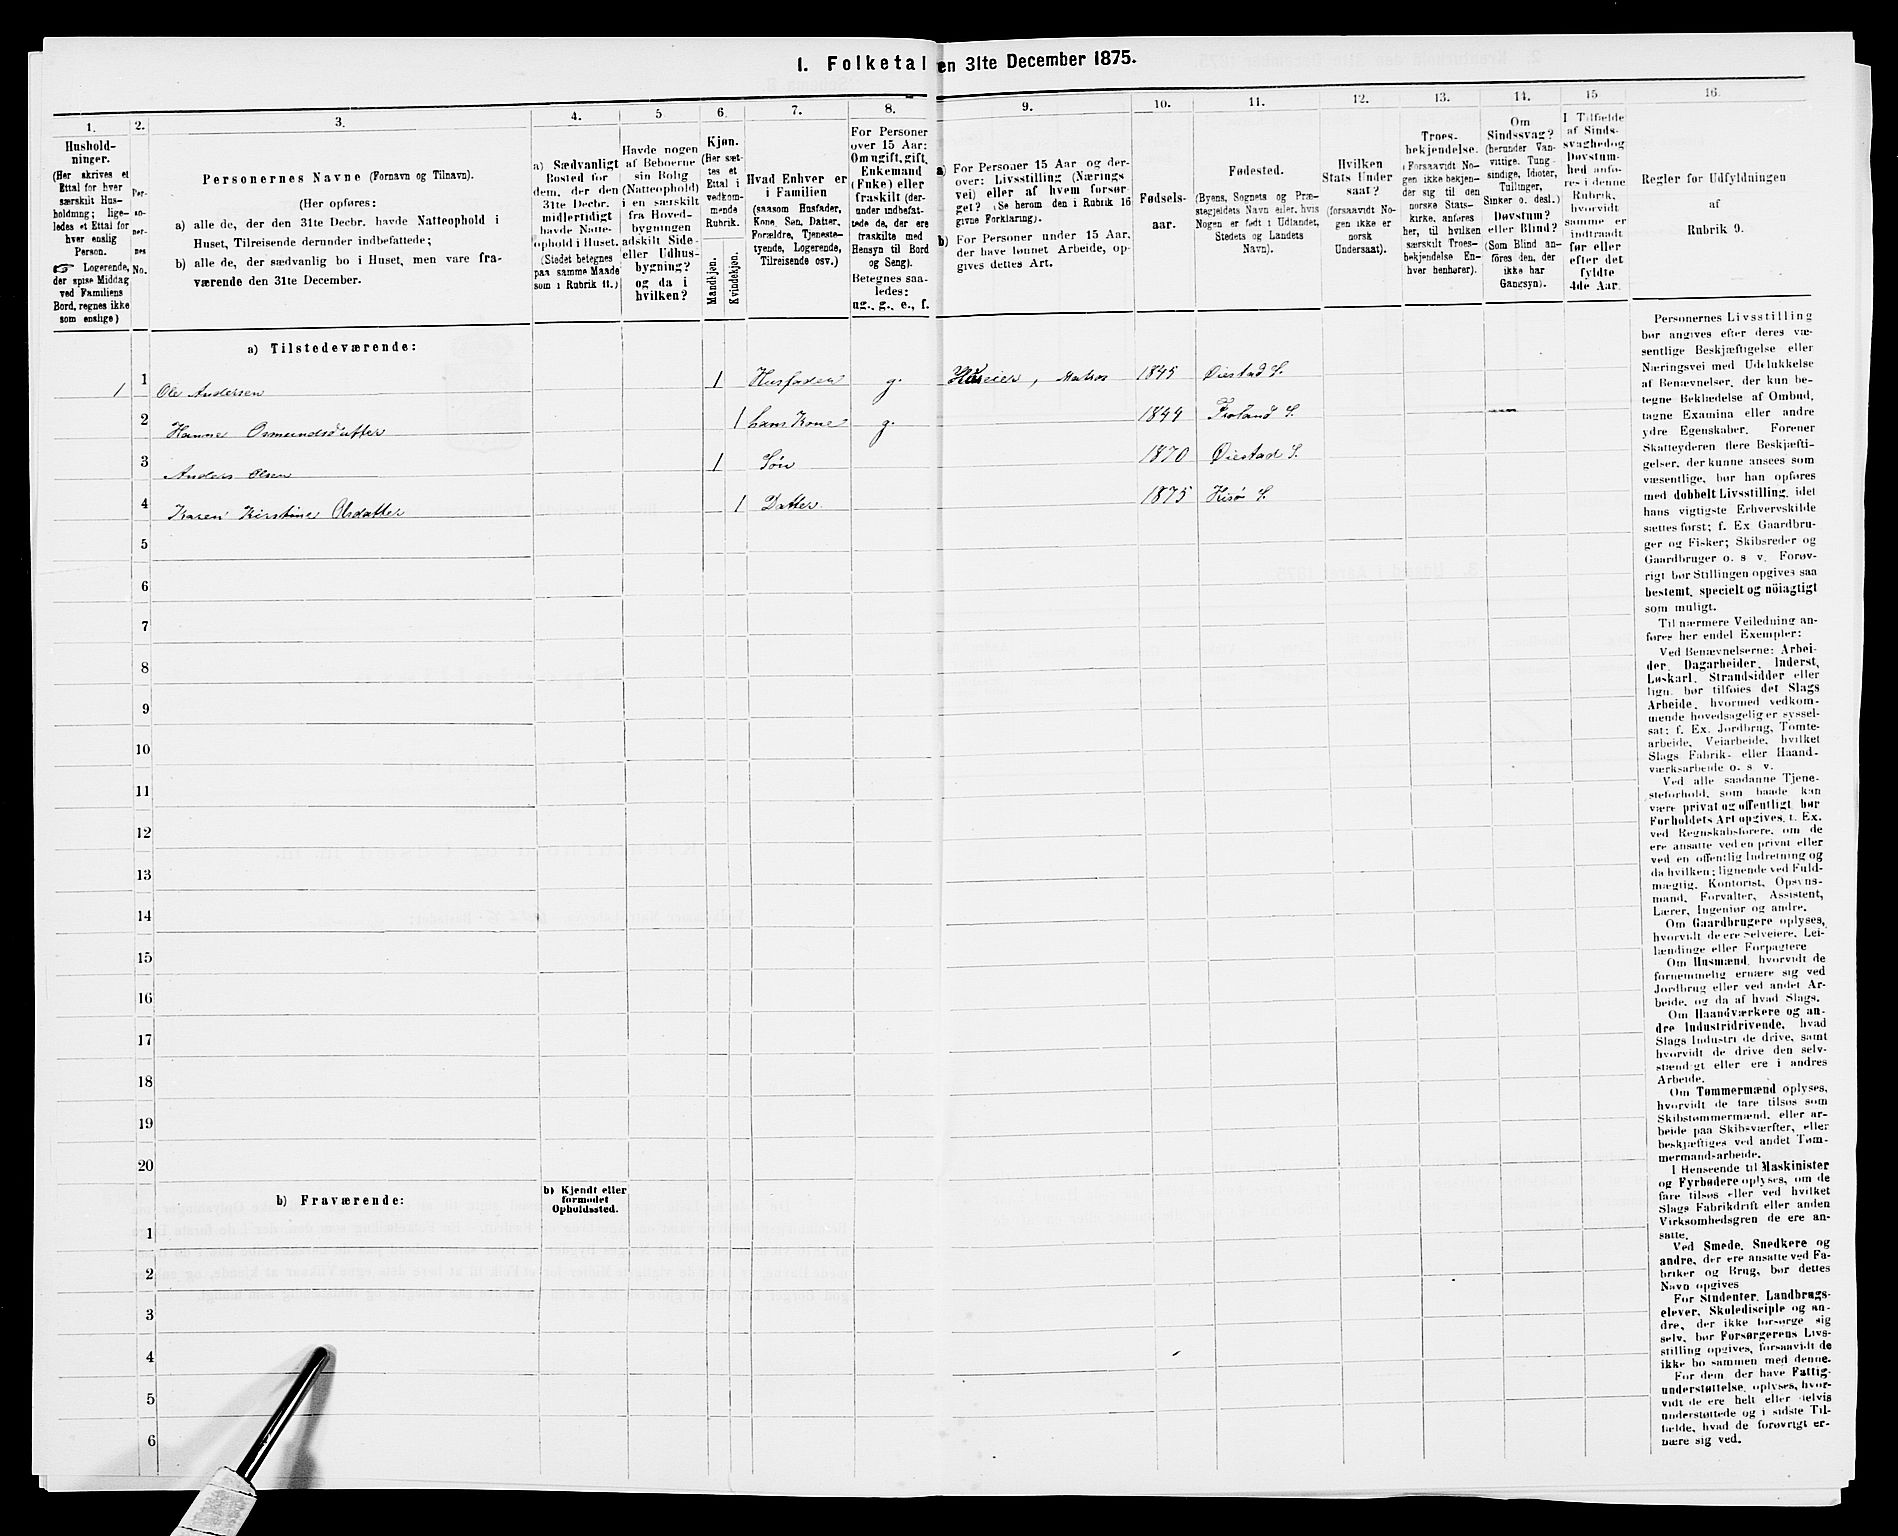 I. Folketal en 31te December 1875.
1.
Hushold-
ninger.
(Her skrives et
Ettal for hver
særskilt Hus-
holdning; lige-
ledes et Ettal for
hver enslig
Person.
☞ Logerende,
der spise Middag
ved Familiens
Bord, regnes ikke
som enslige)
2.
Per-
so-
ner-
nes
No.
3.
Personernes Navne (Fornavn og Tilnavn).
(Her opføres:
a) alle de, der den 31te Decbr. havde Natteophold i
Huset, Tilreisende derunder indbefattede;
b) alle de, der sædvanlig bo i Huset, men vare fra-
værende den 31te December.
4.
a) Sædvanligt
Bosted for
dem, der den
31te Decbr.
midlertidigt
havde Natte-
ophold i Huset.
(Stedet betegnes
paa samme Maade
som i Rubrik 11.)
5
Havde nogen
af Beboerne
sin Bolig
(Natteophold)
i en særskilt
fra Hoved-
bygningen
adskilt Side-
eller Udhus-
bygning?
og da i
hvilken?
6.
Kjøn.
(Her sæt-
tes et
Ettal i
vedkom-
mende
Rubrik.
Mandkjøn.
Kvindekjøn.
7.
Hvad Enhver er
i Familien
(saasom Husfader,
Kone, Søn, Datter,
Forældre, Tjeneste-
tyende, Logerende,
Tilreisende osv.)
8.
For Personer
over 15 Aar:
Om ugift, gift,
Enkemand
(Enke) eller
fraskilt (der-
under indbefat-
tede de, der ere
fraskilte med
Hensyn til Bord
og Seng).
Betegnes saa-
ledes:
ug., g., e., f.
9.
a) For Personer 15 Aar og der-
over: Livsstilling (Nærings-
vei) eller af hvem forsør-
get? (Se herom den i Rubrik 16
givne Forklaring).
b) For Personer under 15 Aar,
der have lønnet Arbeide, op-
gives dettes Art.
10.
Fødsels-
aar.
11.
Fødested.
(Byens, Sognets og Præ-
stegjeldets Navn eller, hvis
Nogen er født i Udlandet,
Stedets og Landets
Navn).
12.
Hvilken
Stats Under
saat?
(forsaavidt No-
gen ikke er
norsk
Undersaat).
13.
Troes-
bekjendelse.
(Forsaavidt No-
gen ikke bekjen-
der sig til den
norske Stats-
kirke, anføres
her, til hvilken
særskilt Troes-
bekjendelse En-
hver henhører).
14.
Om
Sindssvag?
(herunder Van-
vittige, Tung-
sindige, Idioter,
Tullinger,
Sinker o. desl.)
Døvstum?
eller Blind?
(Som Blind an-
føres den, der
ikke har
Gangsyn).
15
I Tilfælde
af Sinds-
svaghed og
Døvstum-
hed anfø-
res i denne
Rubrik,
hvorvidt
samme er
indtraadt
før eller
efter det
fyldte
4de Aar.
16.
Regler for Udfyldningen
af
Rubrik 9.
a) Tilstedeværende:
1 1 Ole Andersen 1 Husfader g. Huseier, Matros 1845 Øiestad S.
2 Hanne Osmundsdatter 1 hans Kone g. 1844 Froland S.
3 Anders Olsen 1 Søn 1870 Øiestad S.
4 Karen Kirstine Olsdatter 1 Datter 1875 Hisø S.
5
6
7
8
9
10
11
12
13
14
15
16
17
18
19
20
b) Fraværende:
b) Kjendt eller
formodet
Opholdssted.
1
2
3
4
5
6
Personernes Livsstilling
bør angives efter deres væ-
sentlige Beskjæftigelse eller
Næringsvei med Udelukkelse
af Benævnelser, der kun be-
tegne Beklædelse af Ombud,
tagne Examina eller andre
ydre Egenskaber. Forener
Skatteyderen flere Beskjæfti-
gelser, der kunne ansees som
væsentlige, bør han opføres
med dobbelt Livsstilling, idet
hans vigtigste Erhvervskilde
sættes først; f. Ex Gaardbru-
ger og Fisker; Skibsreder og
Gaardbruger o. s v. Forøv-
rigt bør Stillingen opgives saa
bestemt, specielt og nöiagtigt
som muligt.
Til nærmere Veiledning an-
føres her endel Exempler:
Ved Benævnelserne: Arbei-
der, Dagarbeider, Inderst,
Løskarl, Strandsidder eller
lign. bør tilføies det Slags
Arbeide, hvormed vedkom-
mende hovedsagelig er syssel-
sat; f. Ex. Jordbrug, Tomte-
arbeide, Veiarbeide, hvilket
Slags Fabrik- eller Haand-
værksarbeide o. s. v.
Ved alle saadanne Tjene-
steforhold, som baade kan
være privat og offentligt, bør
Forholdets Art opgives, f. Ex.
ved Regnskabsførere, om de
ere ansatte ved en privat eller
ved en offentlig Indretning og
da hvilken; lignende ved Fuld-
mægtig, Kontorist, Opsyns-
mand, Forvalter, Assistent,
Lærer, Ingeniør og andre.
Om Gaardbrugere oplyses,
hvorvidt de ere Selveiere, Lei-
lændinge eller Forpagtere
Om Husmænd, hvorvidt de
fornemmelig ernære sig ved
Jordbrug eller ved andet Ar-
beide, og da af hvad Slags.
Om Haandværkere og an-
dre Industridrivende, hvad
Slags Industri de drive, samt
hvorvidt de drive den selv-
stændigt eller ere i andres
Arbeide.
Om Tømmermænd oplyses,
hvorvidt de fare tilsøs som
Skibstømmermænd, eller ar-
beide paa Skibsværfter, eller
beskjæftiges ved andet Tøm-
mermandsarbeide.
I Henseende til Maskinister
og Fyrbødere oplyses, om de
fare tilsøs eller ved hvilket
Slags Fabrikdrift eller anden
Virksomhedsgren de ere an-
satte.
Ved Smede, Snedkere og
andre, der ere ansatte ved Fa-
briker og Brug, bør dettes
Navn opgives
For Studenter, Landbrugs-
elever, Skoledisciple og an-
dre, der ikke forsørge sig
selv, bør Forsørgerens Livs-
stilling opgives, forsaavidt de
ikke bo sammen med denne.
For dem, der have Fattig-
understøttelse, oplyses, hvor-
vidt de ere helt eller delvis
understøttede og i sidste Til-
fælde, hvad de forøvrigt er-
nære sig ved.